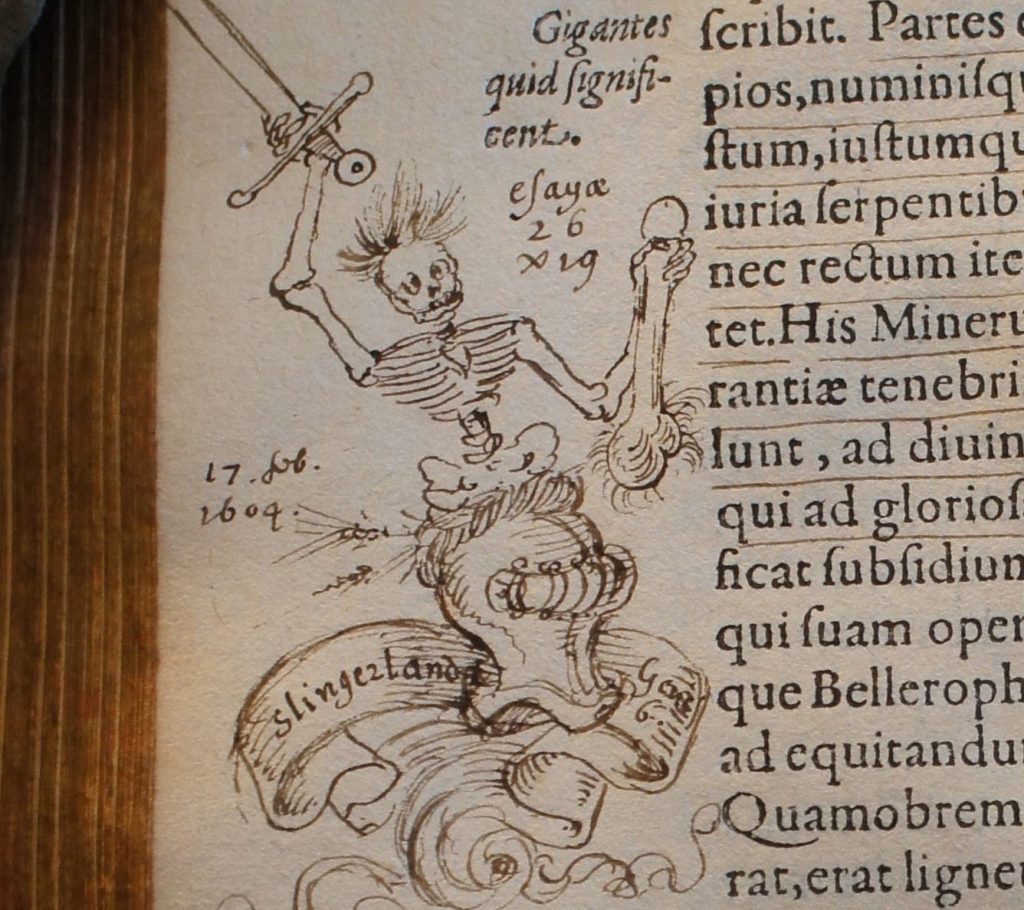 Gigantes
quid ſignifi-
cent.
eſayæ
26
v 19
17. feb.
1604.
Slingerland
ſcribit. Partes
pios, numiniſqu
ſtum, iuſtumqu
iuria ſerpentib
nec rectum ite
tet. His Mineru
rantiæ tenebri
lunt, ad diuin
qui ad glorioſ
ficat ſubſidium
qui ſuam oper
que Belleroph
ad equitandu
Quamobrem
rat, erat ligne